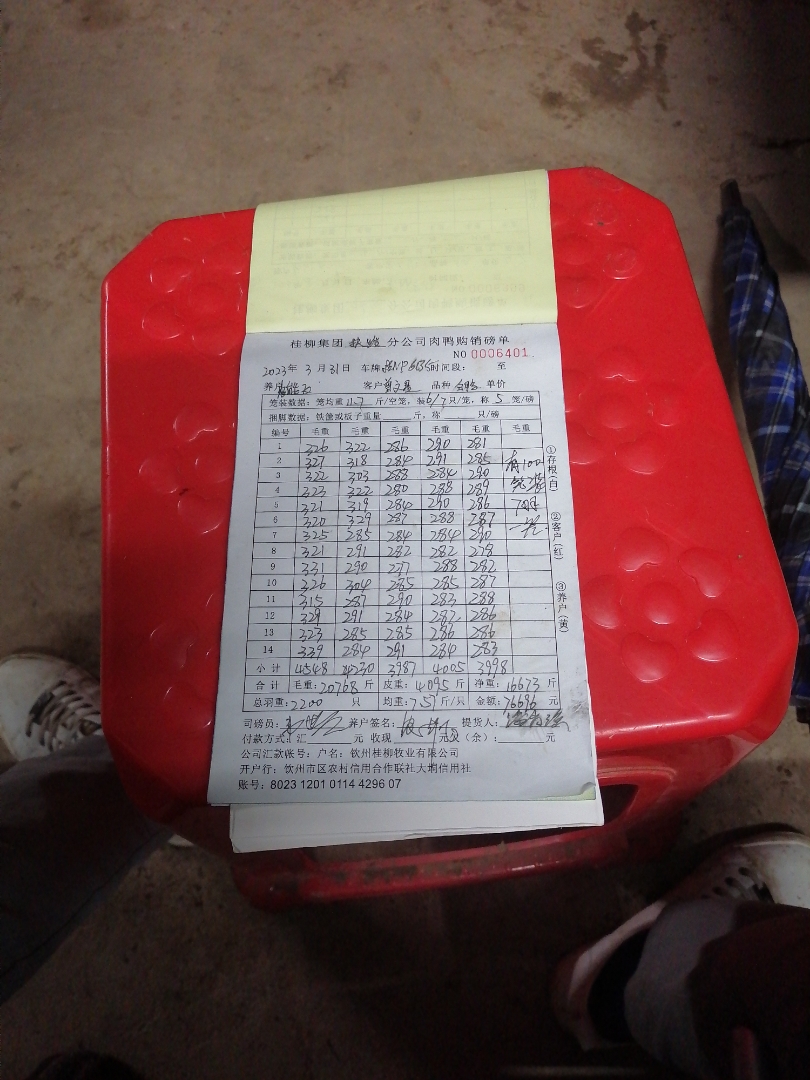 桂柳集团 分公司肉鸭购销磅单
NO 0006401
2023年 3 月 31 日 车牌: 时间段: 至
养户 客户 品种 单价
笼装数据: 笼均重 11.7 斤/空笼, 装 6/7 只/笼, 称 5 笼/磅
捆脚数据: 铁笼或板子重量 斤, 称 只/磅
编号 毛重 毛重 毛重 毛重 毛重 毛重
1 326 322 286 290 281
2 327 318 284 291 285 有100
3 322 303 288 284 290
4 323 322 280 288 289
5 321 319 284 290 286
6 320 329 287 288 287
7 325 285 284 284 290
8 321 291 282 282 278
9 331 290 277 288 282
10 326 304 285 285 287
11 315 287 290 283 288
12 329 291 284 287 286
13 323 285 285 286 286
14 339 284 291 284 283
小计 4548 4230 3987 4005 3998
合计 毛重: 20768 斤 皮重: 4095 斤 净重: 16673 斤
总羽重: 2200 只 均重: 7.57 斤/只 金额: 76696 元
司磅员: 养户签名: 提货人:
付款方式: 汇 元 收现 元 欠(余): 元
公司汇款账号: 户名: 钦州桂柳牧业有限公司
开户行: 钦州市区农村信用合作联社大垌信用社
账号: 8023 1201 0114 4296 07
①存根(白)
②客户(红)
③养户(黄)